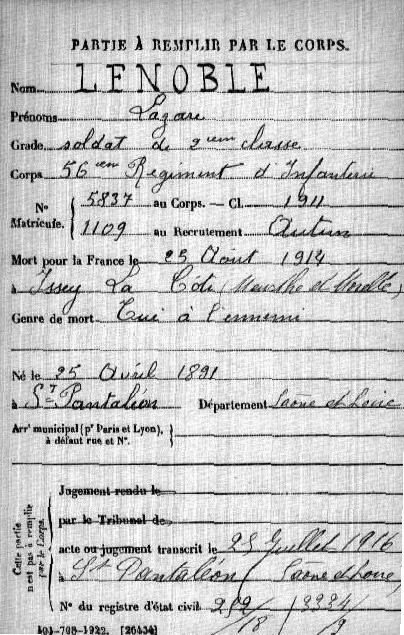 PARTIE À REMPLIR PAR LE CORPS.
Nom LENOBLE
Prénoms Lazare
Grade soldat de 2ième classe
Corps 56em Régiment d'Infanterie
N° Matricule. { 5837 au Corps. — Cl. 1911
1109 au Recrutement Autun
Mort pour la France le 25 Août 1914
à Issey La Côte (Meurthe et Moselle)
Genre de mort Tué à l'ennemi
Né le 25 Avril 1891
à St Pantaléon Département Saône et Loire
Arrt municipal (pr Paris et Lyon), à défaut rue et N°. }
Cette partie n'est pas à remplir par le Corps.
Jugement rendu le
par le Tribunal de
acte ou jugement transcrit le 25 Juillet 1916
à St Pantaléon (Saône et Loire)
N° du registre d'état civil
101-708-1922. [26434]